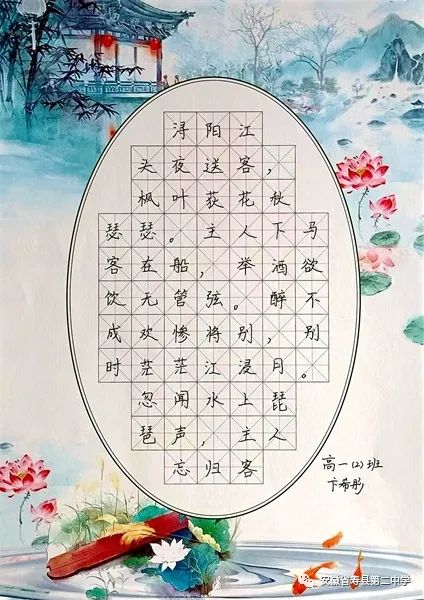 浔阳江
头夜送客，
枫叶荻花秋
瑟瑟。主人下马
客在船，举酒欲
饮无管弦。醉不
成欢惨将别，别
时茫茫江浸月。
忽闻水上琵
琶声，主人
忘归客
高一(2)班
卞希彤
安徽省寿县第二中学